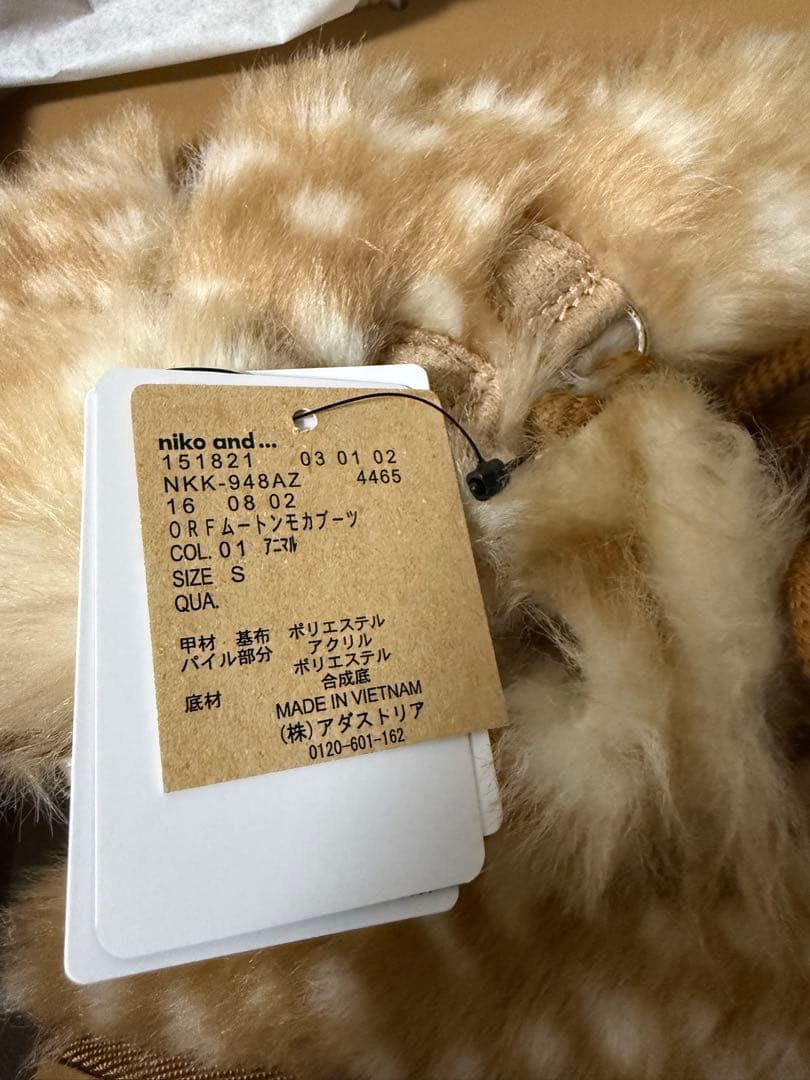 niko and ...
151821 03 01 02
NKK-948AZ 4465
16 08 02
ORFムートンモカブーツ
COL. 01 アニマル
SIZE S
QUA.
甲材・基布 ポリエステル
パイル部分 アクリル
ポリエステル
底材 合成底
MADE IN VIETNAM
(株)アダストリア
0120-601-162